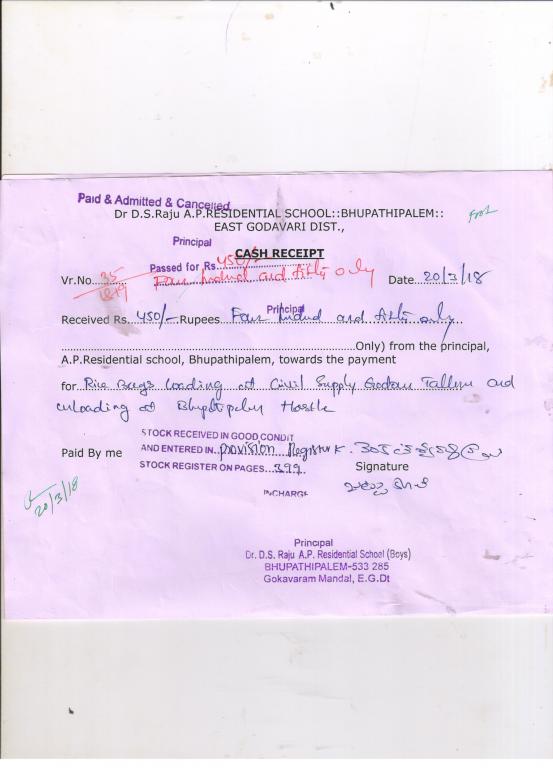 Paid & Admitted & Cancelled
Dr D.S.Raju A.P.RESIDENTIAL SCHOOL::BHUPATHIPALEM::
EAST GODAVARI DIST.,
Principal
CASH RECEIPT
Passed for Rs. 450/-
Four hundred and fifty only
Vr.No. 35 Date. 20/3/18
Principal
Received Rs. 450/- Rupees Four hundred and fifty only
Only) from the principal,
A.P.Residential school, Bhupathipalem, towards the payment
for Rice Bags loading at Civil Supply Godown and
unloading at Bhupathipalem
STOCK RECEIVED IN GOOD CONDIT
Paid By me AND ENTERED IN provision Register
STOCK REGISTER ON PAGES 399 Signature
INCHARGE
20/3/18
Principal
Dr. D.S. Raju A.P. Residential School (Boys)
BHUPATHIPALEM-533 285
Gokavaram Mandal, E.G.Dt